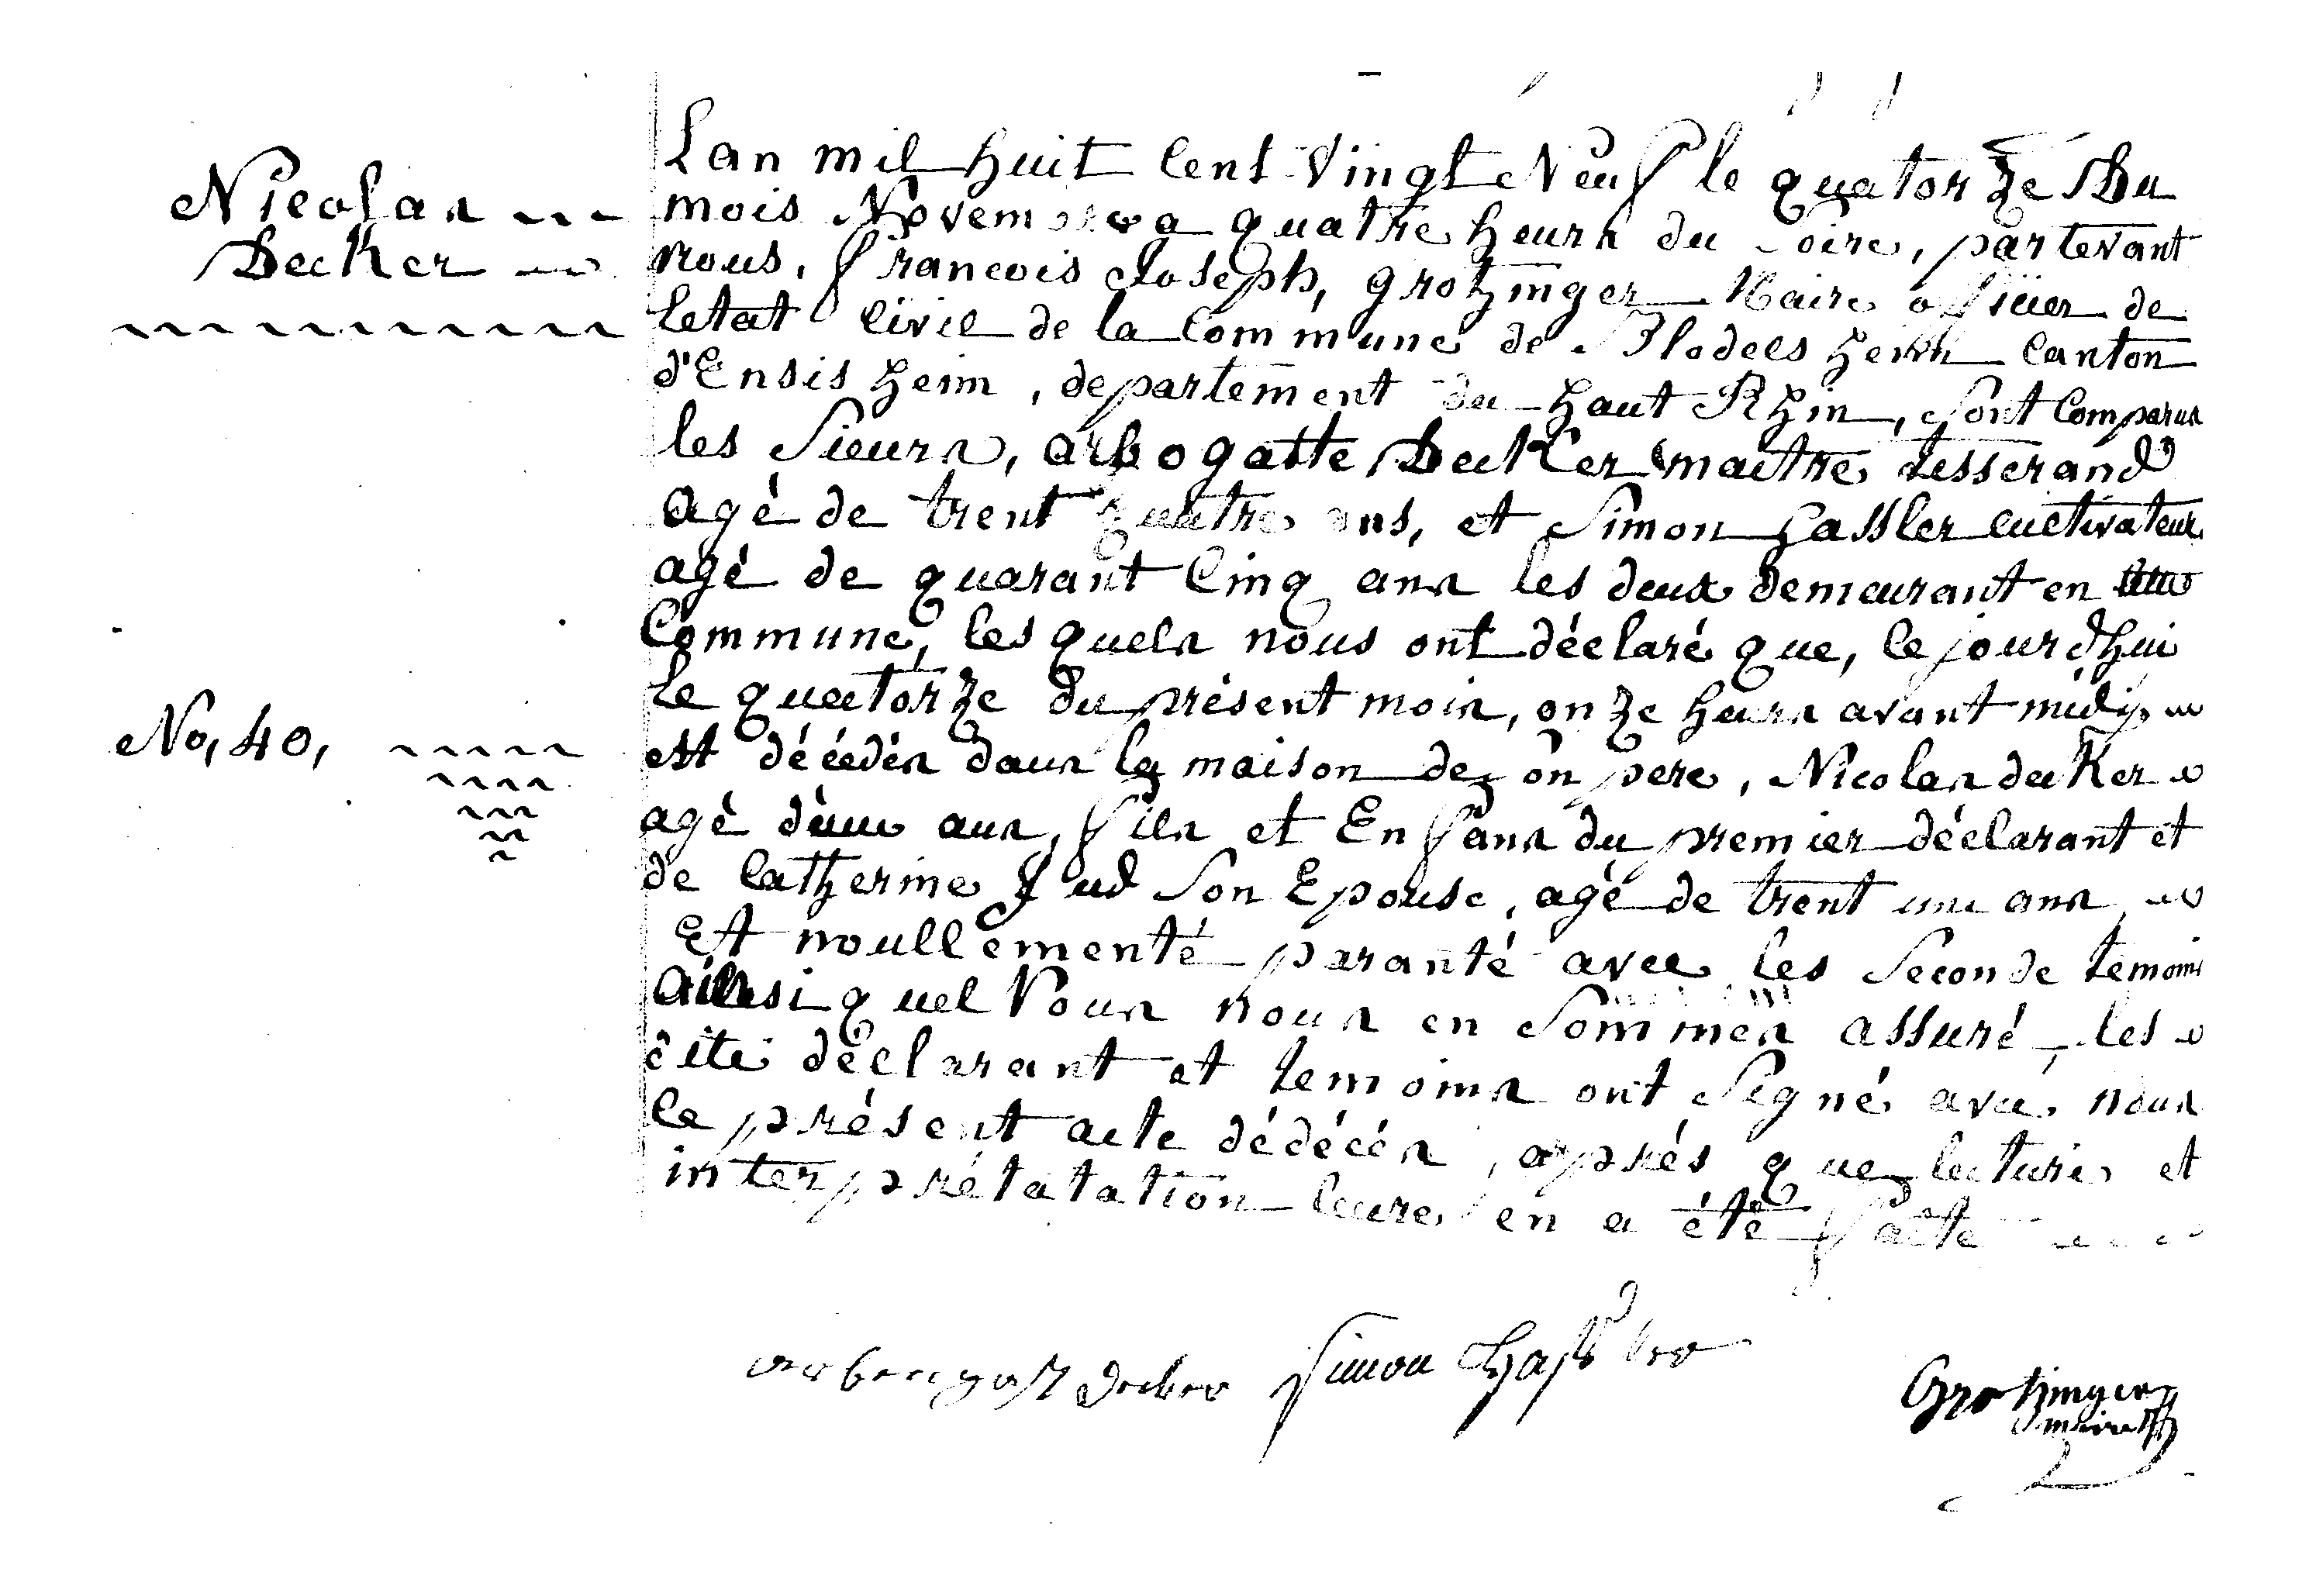 Nicolas
Decker
No, 40,
Lan mil huit Cent Vingt Neuf le quatorze Du
mois Novembre a quatre heurs du Soire, partevant
nous, francois Joseph, grotzinger Maire officier de
letat Civil de la Commune de Blodelsheim Canton
d'Ensisheim, departement du haut Rhin, Sont Comparus
les Sieurs, arbogatte Decker maitre tesserand
agé de trent quatre ans, et Simon hassler cultivateur
agé de quarant Cinq ans les deux demeurant en
Commune, les quels nous ont déclaré que, le jourdhui
le quatorze du présent mois, onze heurs avant midy
est décédés dans la maison de son pere, Nicolas decker
agé d'un ans, fils et Enfans du premier déclarant et
de Catherine Jud Son Epouse, agé de trent une ans
Et noullementé paranté avec les Seconde temoins
ainsi quel Nous nous en Sommes assuré, les
cite déclarant et temoins ont Signé avec nous
le présent acte dédécés, aprés que lecture et
interprétatation leure en a été faite
arbougast Decker Simon Hassler
Grotzinger
maire